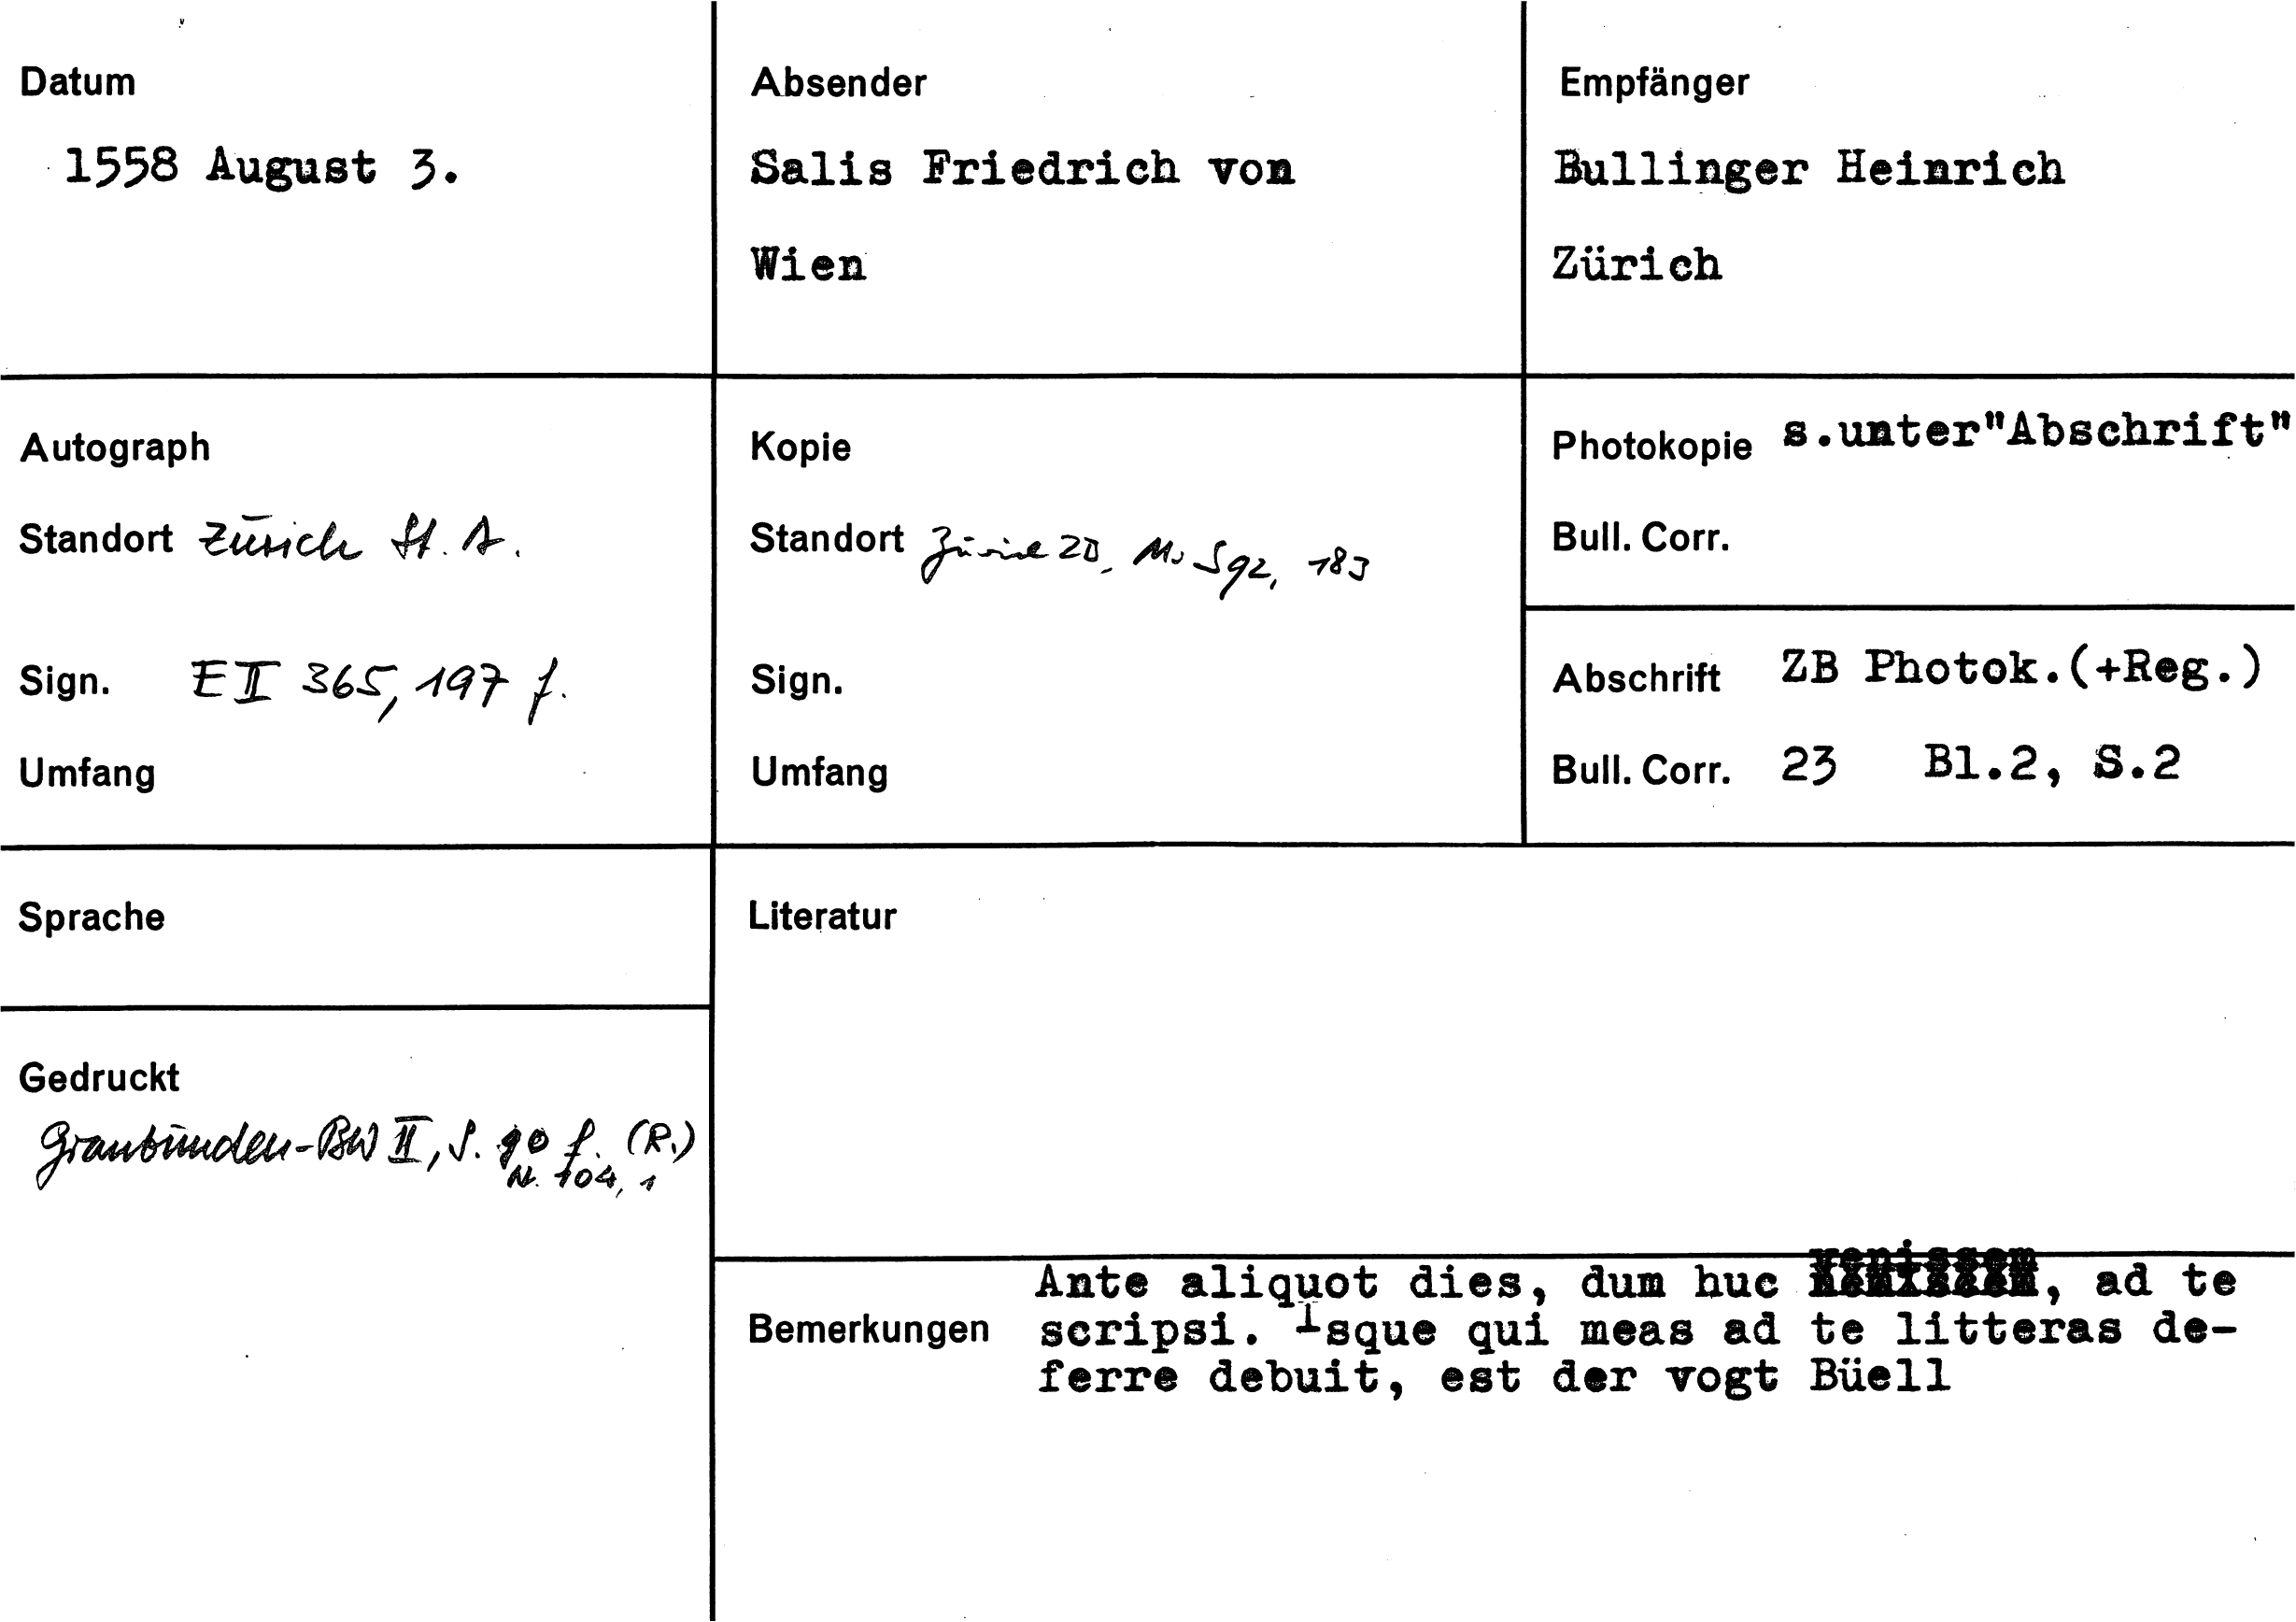 Datum
1558 August 3.
Absender
Salis Friedrich von
Wien
Empfänger
Bullinger Heinrich
Zürich
Autograph
Standort Zürich St. A.
Sign. E II 365, 197 f.
Umfang
Kopie
Standort Zürich ZB, Ms S 92, 183
Sign.
Umfang
Photokopie s.unter"Abschrift"
Bull. Corr.
Abschrift ZB Photok.(+Reg.)
Bull. Corr. 23 Bl.2, S.2
Sprache
Gedruckt
Graubünden-BW II, S. 90 f. (R.)
N. 104, 1
Literatur
Bemerkungen
venissem
Ante aliquot dies, dum huc , ad te
scripsi. Isque qui meas ad te litteras de-
ferre debuit, est der vogt Büell